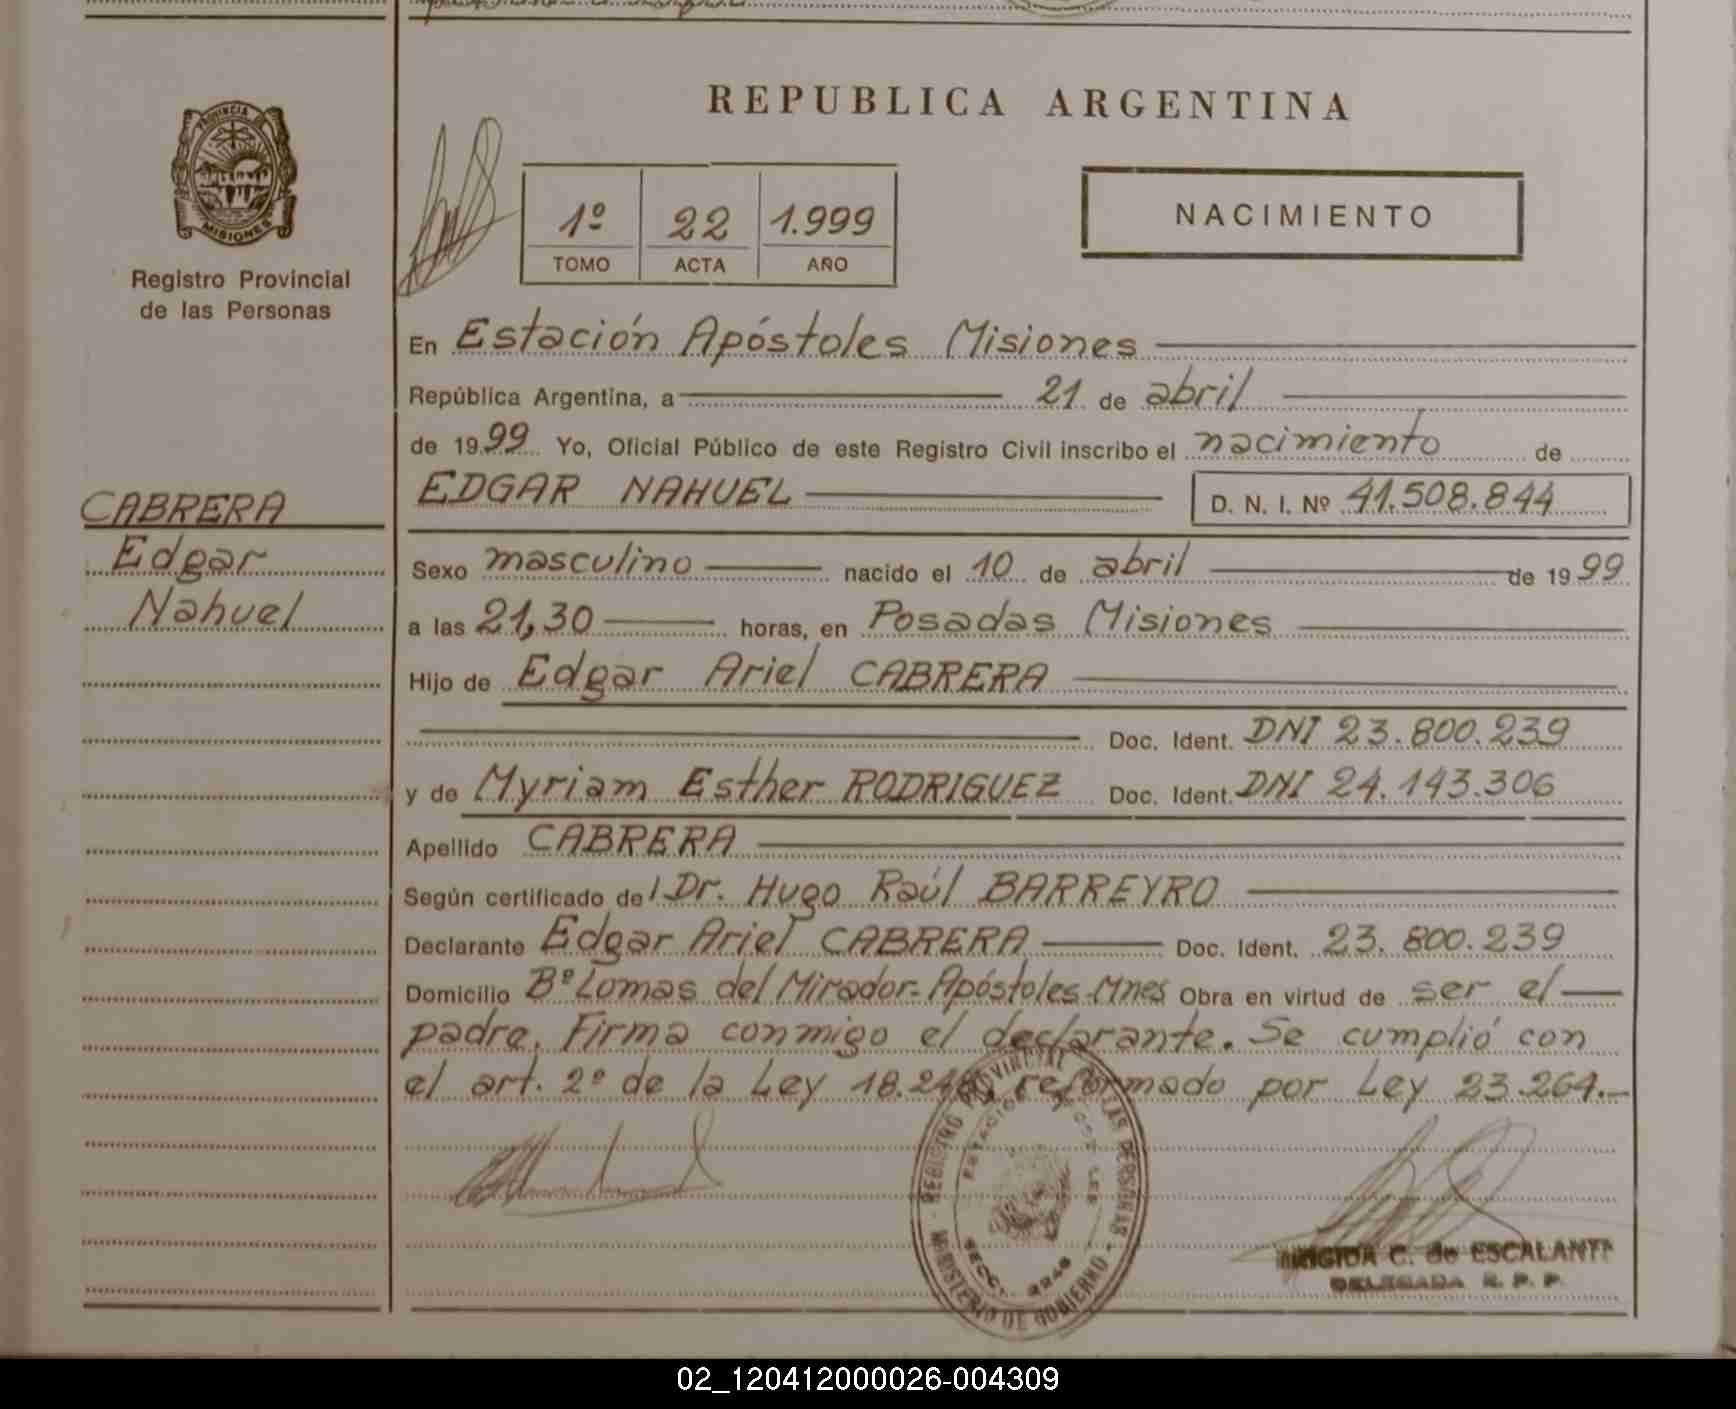 PROVINCIA DE
MISIONES
Registro Provincial
de las Personas
CABRERA
Edgar
Nahuel
REPUBLICA ARGENTINA
1º 22 1.999
TOMO ACTA AÑO
NACIMIENTO
En Estación Apóstoles Misiones
República Argentina, a 21 de abril
de 1999 Yo, Oficial Público de este Registro Civil inscribo el nacimiento de
EDGAR NAHUEL D. N. I. Nº 41.508.844
Sexo masculino nacido el 10 de abril de 1999
a las 21,30 horas, en Posadas Misiones
Hijo de Edgar Ariel CABRERA
Doc. Ident. DNI 23.800.239
y de Myriam Esther RODRIGUEZ Doc. Ident. DNI 24.143.306
Apellido CABRERA
Según certificado de l Dr. Hugo Raúl BARREYRO
Declarante Edgar Ariel CABRERA Doc. Ident. 23.800.239
Domicilio Bº Lomas del Mirador-Apóstoles-Mnes Obra en virtud de ser el
padre. Firma conmigo el declarante. Se cumplió con
el art. 2º de la Ley 18.248 reformado por Ley 23.264.-
REGISTRO PROVINCIAL DE LAS PERSONAS
MINISTERIO DE GOBIERNO
C. de ESCALANTE
DELEGADA R. P. P.
02_120412000026-004309